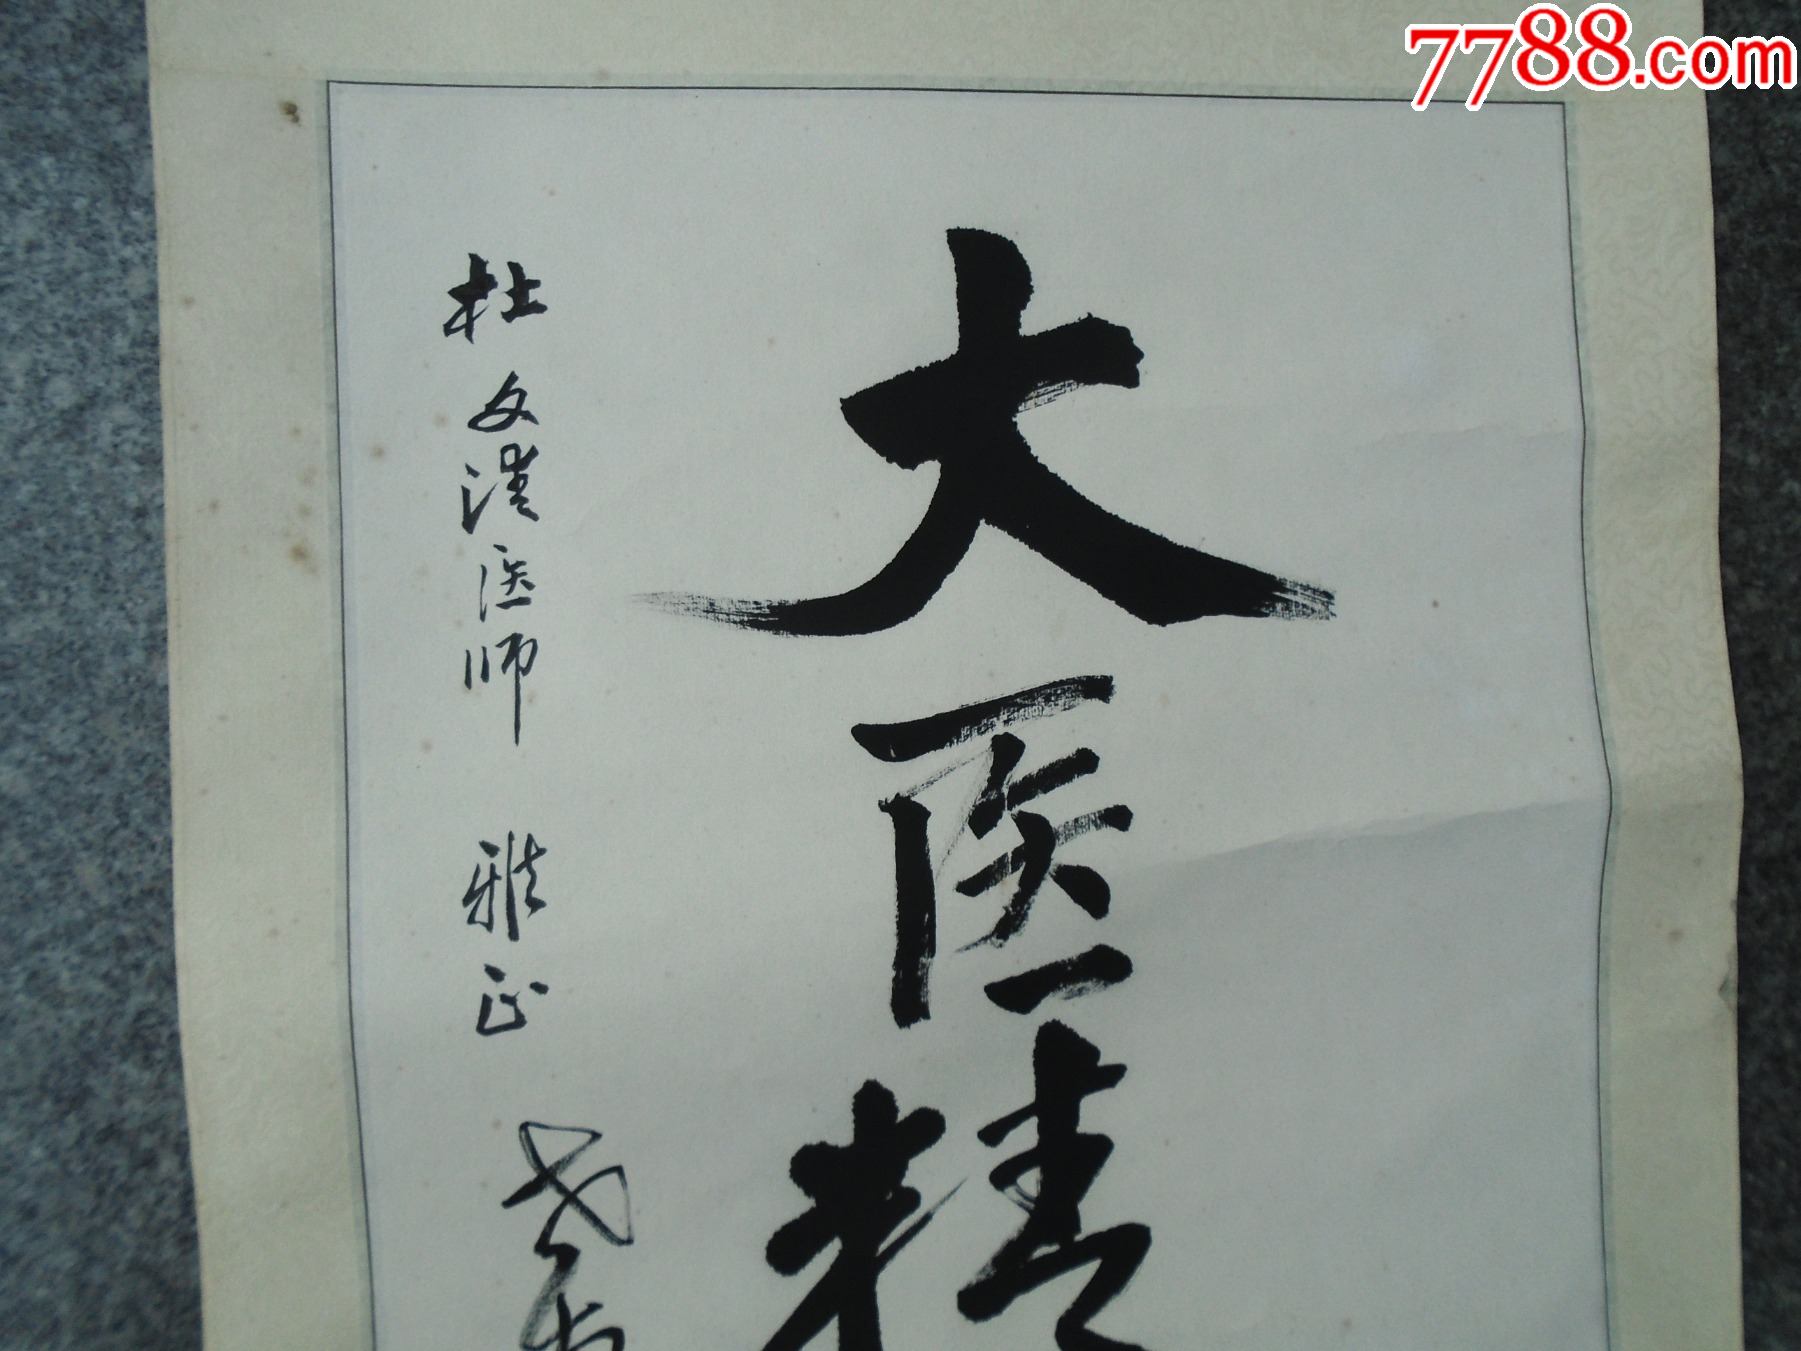 7788.com
大医精
杜文汉医师 雅正